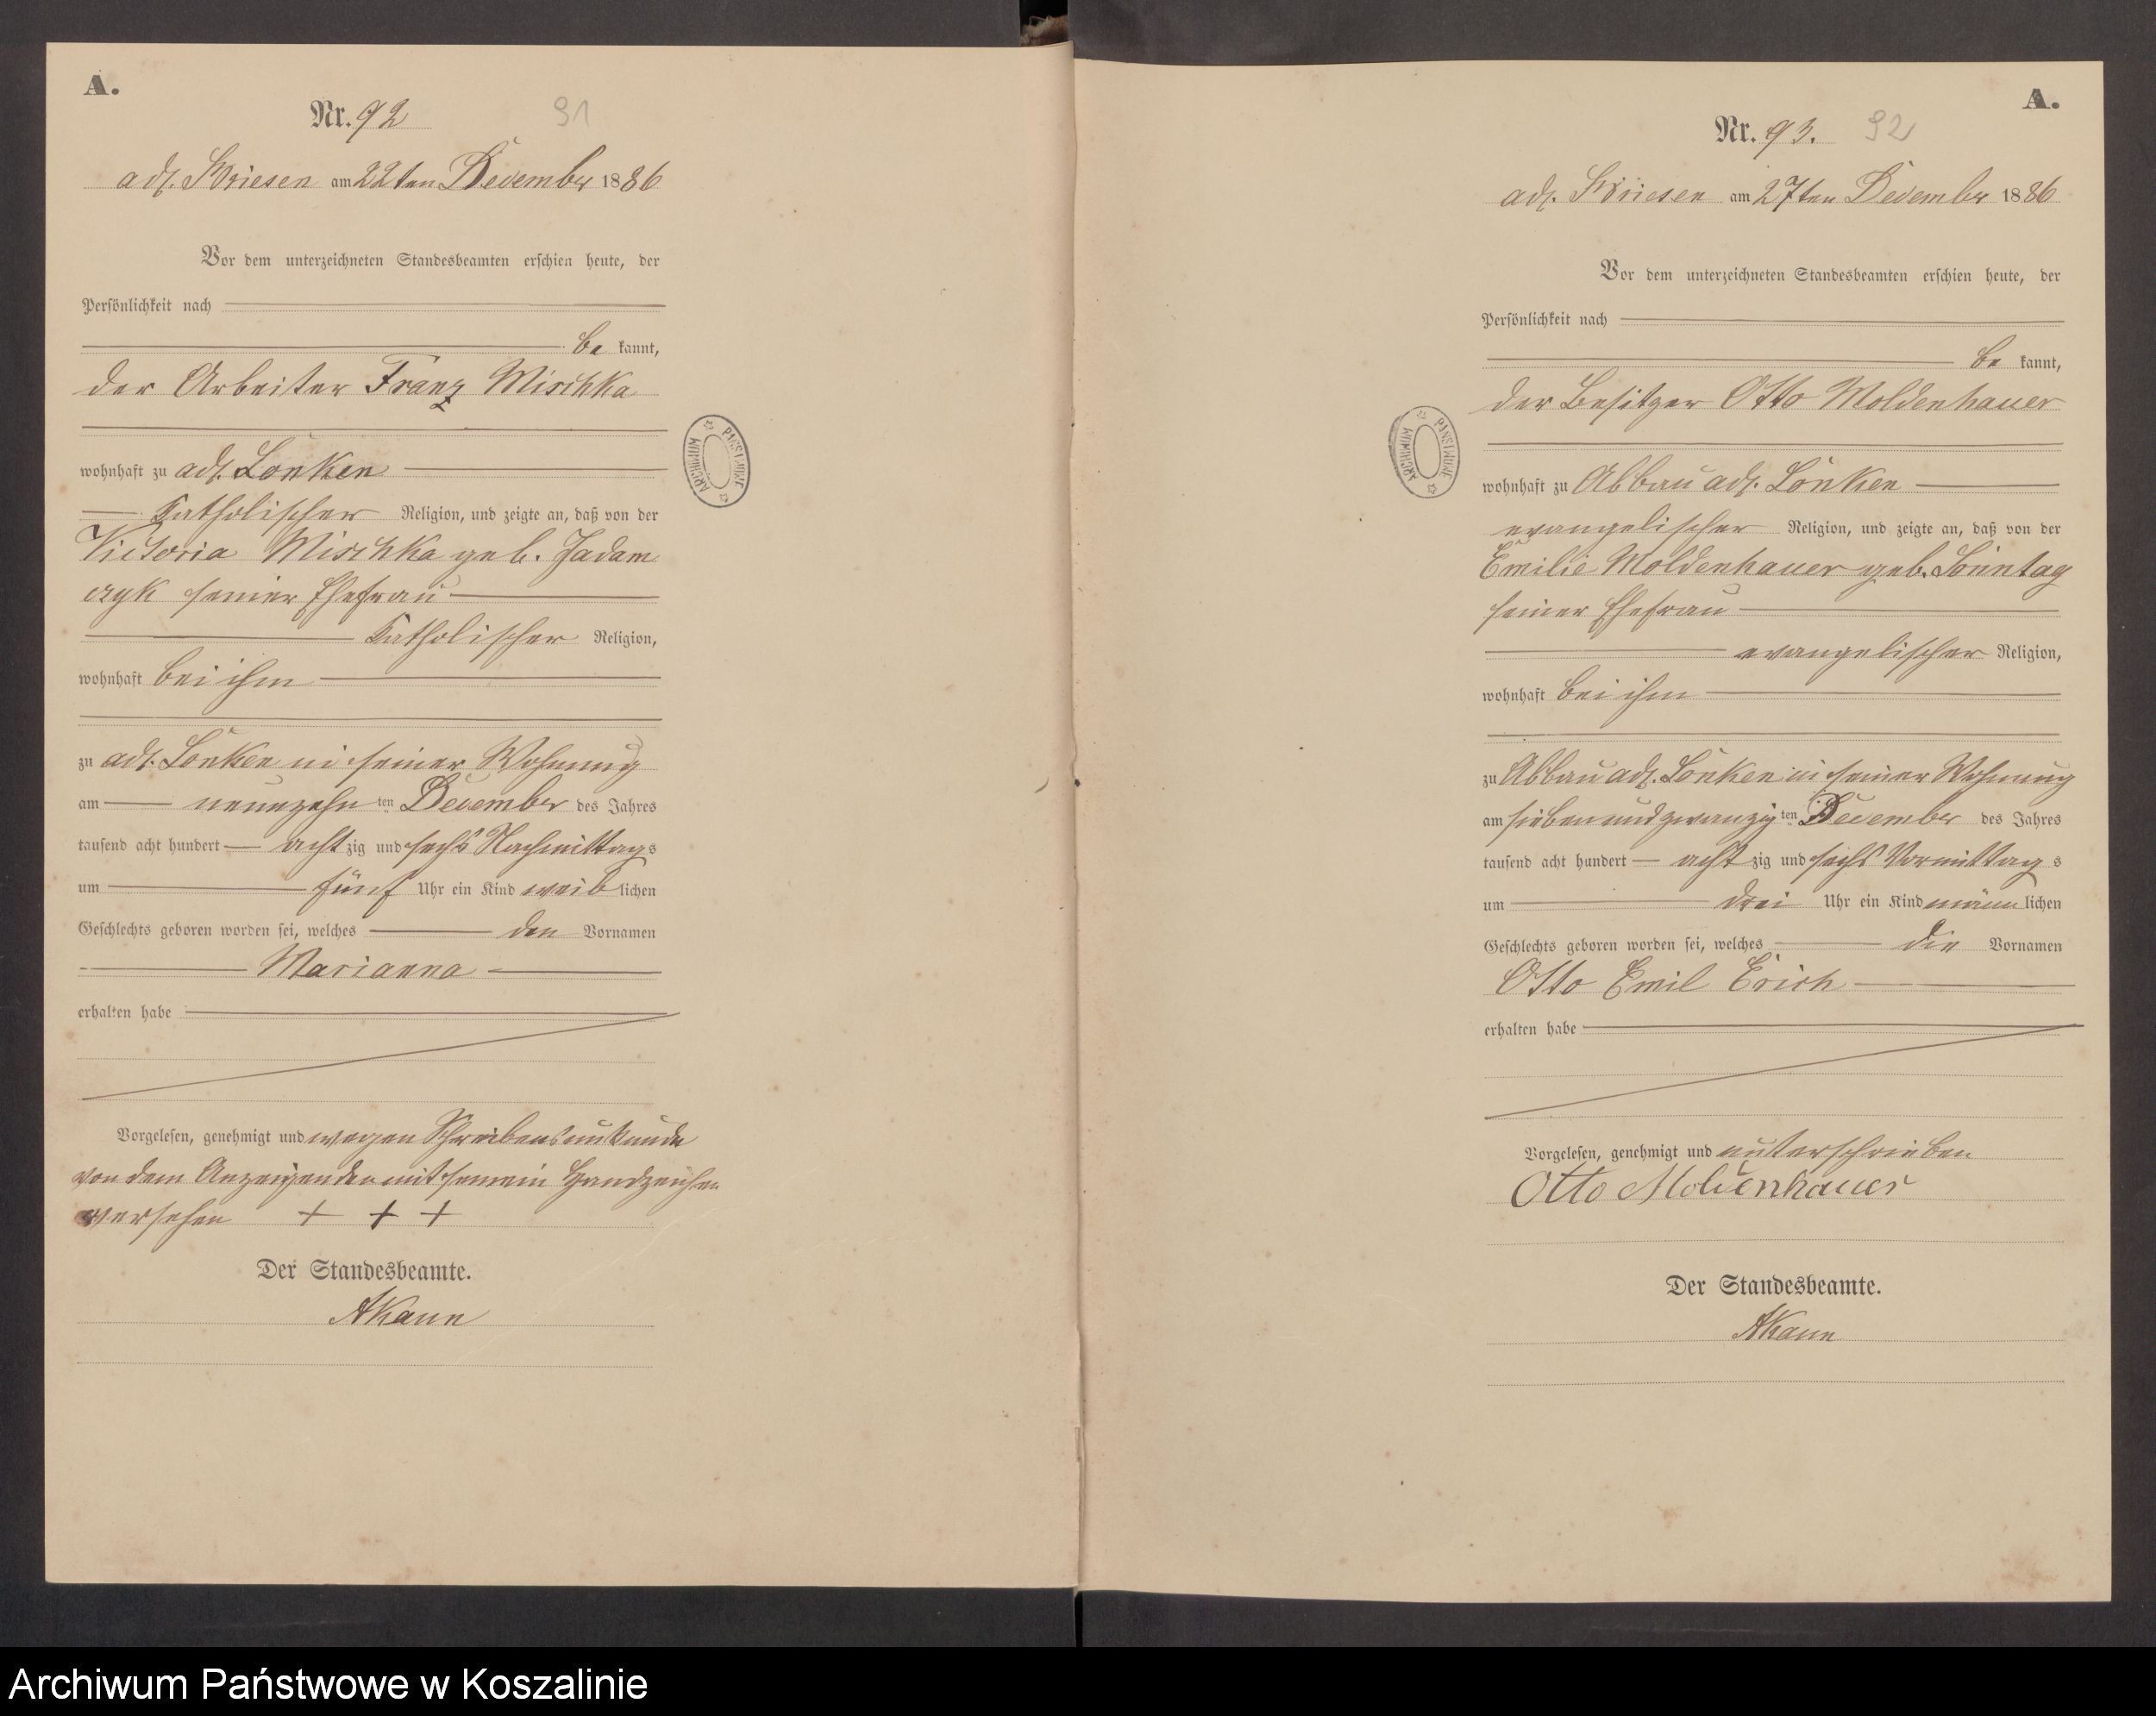 A.
Nr. 92
91
adl. Briesen am 22ten December 1886
Vor dem unterzeichneten Standesbeamten erschien heute, der
Persönlichkeit nach
be kannt,
der Arbeiter Franz Mischka
wohnhaft zu adl. Lonken
Katholischer Religion, und zeigte an, daß von der
Victoria Mischka geb. Jadam
czyk seiner Ehefrau
Katholischer Religion,
wohnhaft bei ihm
zu adl. Lonken in seiner Wohnung
am neunzehn ten December des Jahres
tausend acht hundert acht zig und sechs Nachmittags
um fünf Uhr ein Kind weib lichen
Geschlechts geboren worden sei, welches den Vornamen
Marianna
erhalten habe
Vorgelesen, genehmigt und wegen Schreibensunkunde
von dem Anzeigenden mit seinem Handzeichen
versehen + + +
Der Standesbeamte.
AKann
ARCHIWUM PAŃSTWOWE
A.
Nr. 93.
92
adl. Briesen am 27ten December 1886
Vor dem unterzeichneten Standesbeamten erschien heute, der
Persönlichkeit nach
be kannt,
der Besitzer Otto Moldenhauer
wohnhaft zu Abbau adl. Lonken
evangelischer Religion, und zeigte an, daß von der
Emilie Moldenhauer geb. Sonntag
seiner Ehefrau
evangelischer Religion,
wohnhaft bei ihm
zu Abbau adl. Lonken in seiner Wohnung
am siebenundzwanzig ten December des Jahres
tausend acht hundert acht zig und sechs Vormittag s
um drei Uhr ein Kind männ lichen
Geschlechts geboren worden sei, welches die Vornamen
Otto Emil Erich
erhalten habe
Vorgelesen, genehmigt und unterschrieben
Otto Moldenhauer
Der Standesbeamte.
AKann
ARCHIWUM PAŃSTWOWE
Archiwum Państwowe w Koszalinie